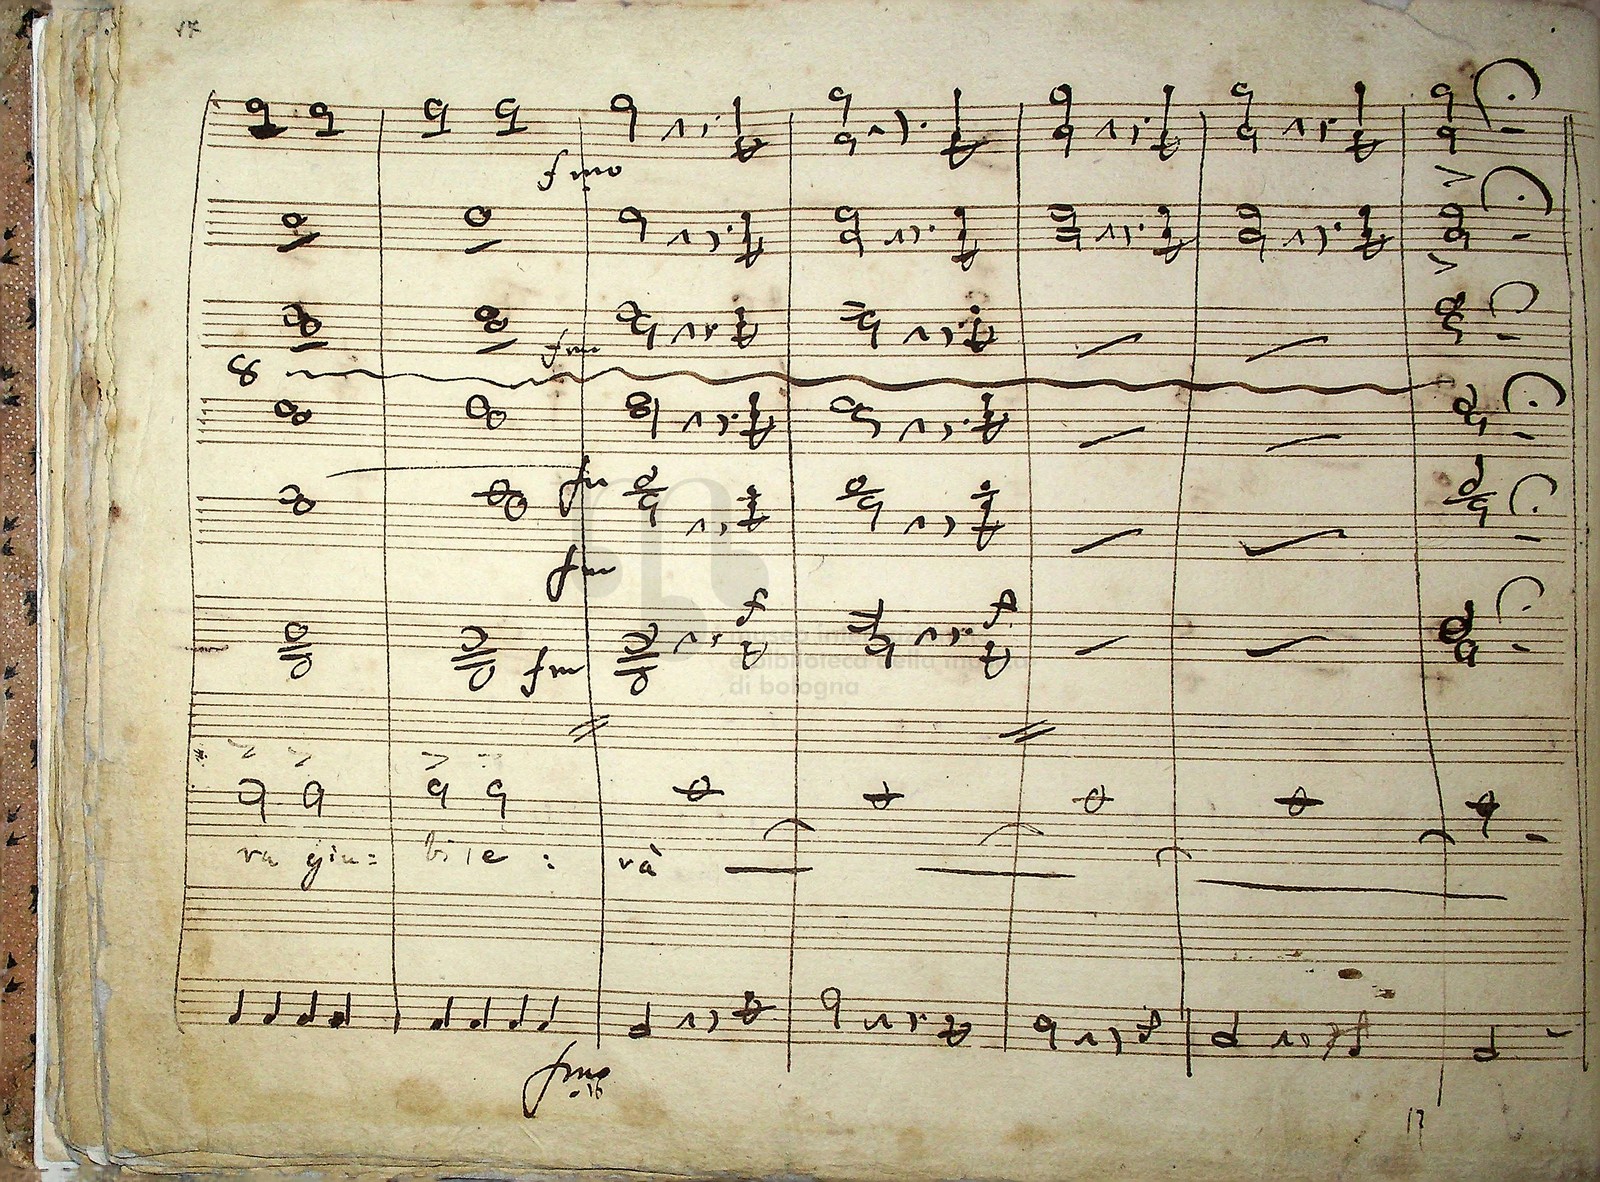 fmo
fmo
8
fm
fm
f
f
fm
ra giu= bile : rà
fmo
museo internazionale
e biblioteca della musica
di bologna